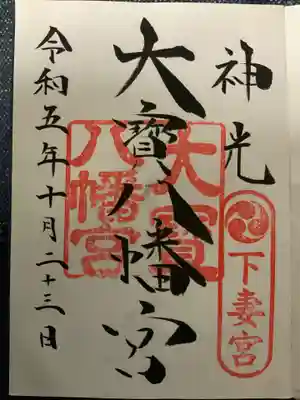 神光
下妻宮
大寳八幡宮
大寳
八幡宮
令和五年十月二十三日